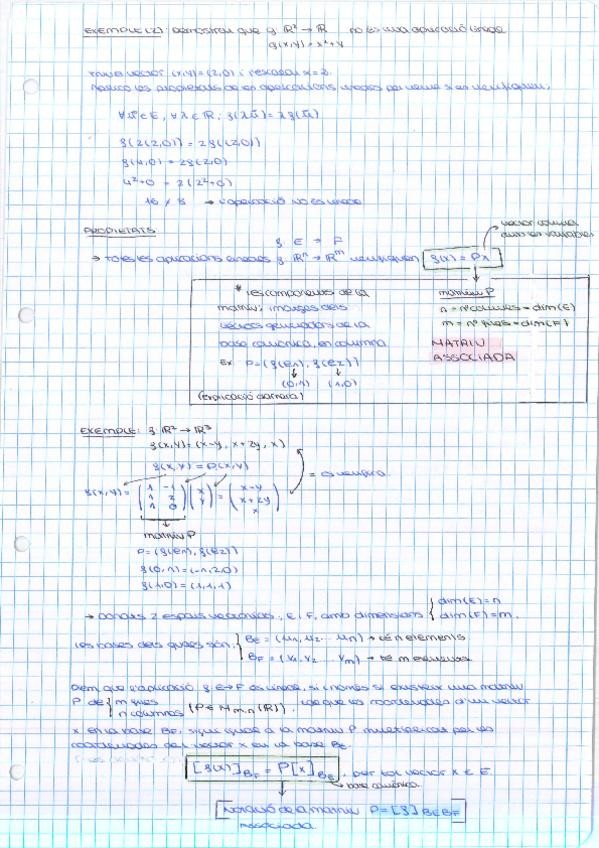 EXEMPLE (2): Demostrau que f ℝ² → ℝ no és una aplicació lineal
f(x,y) = x² + y
vector (x,y) = (2,0) i l'escalar α = 2.
les propietats de les aplicacions lineals per veure si es verifiquen:
∀ū ∈ E, ∀λ ∈ ℝ, f(λū) = λf(ū)
f(2(2,0)) = 2f((2,0))
f(4,0) = 2f(2,0)
4² + 0 = 2(2² + 0)
16 ≠ 8 → L'aplicació no és lineal
PROPIETATS
vector columna
variables
f E → F
→ totes les aplicacions lineals f ℝⁿ → ℝᵐ verifiquen f(x) = Px
* les components de la
matriu: imatges dels
vectors generadors de la
base canònica, en columna
Ex. P = (f(e1), f(e2))
(0,1) (1,0)
(explicació darrera)
matriu P
n = nº columnes = dim(E)
m = nº files = dim(F)
MATRIU
ASSOCIADA
EXEMPLE: f ℝ² → ℝ³
f(x,y) = (x-y, x+2y, x)
f(x,y) = P(x,y)
= es verifica
f(x,y) = (1 -1
1 2
1 0) (x
y) = (x-y
x+2y
x)
matriu P
P = (f(e1), f(e2))
f(0,1) = (-1,2,0)
f(1,0) = (1,1,1)
→ Donats 2 espais vectorials, E i F, amb dimensions { dim(E) = n
dim(F) = m.
les bases dels quals són, { BE = (u1, u2... un) → té n elements
BF = (v1, v2 ... vm) → té m elements
Deim que l'aplicació f E→F és lineal, si i només si existeix una matriu
P de { m files
n columnes (P ∈ Mm,n(ℝ)), tal que les coordenades d'un vector
x en la base BF, sigui igual a la matriu P multiplicat per les
coordenades del vector x en la base BE.
[f(x)]BF = P[x]BE, per tot vector x ∈ E.
base canònica
Notació de la matriu P = [f]BEBF
associada